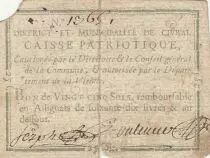 No. 1565.
DISTRICT ET MUNICIPALITÉ DE CIVRAI.
CAISSE PATRIOTIQUE,
Cautionnée par le Directoire & le Conseil général
de la Commune, & autorisée par le Départe-
tement de la Vienne.
BON de VINGT-CINQ SOLS, remboursable
en Assignats de soixante-dix livres & au-
dessous.